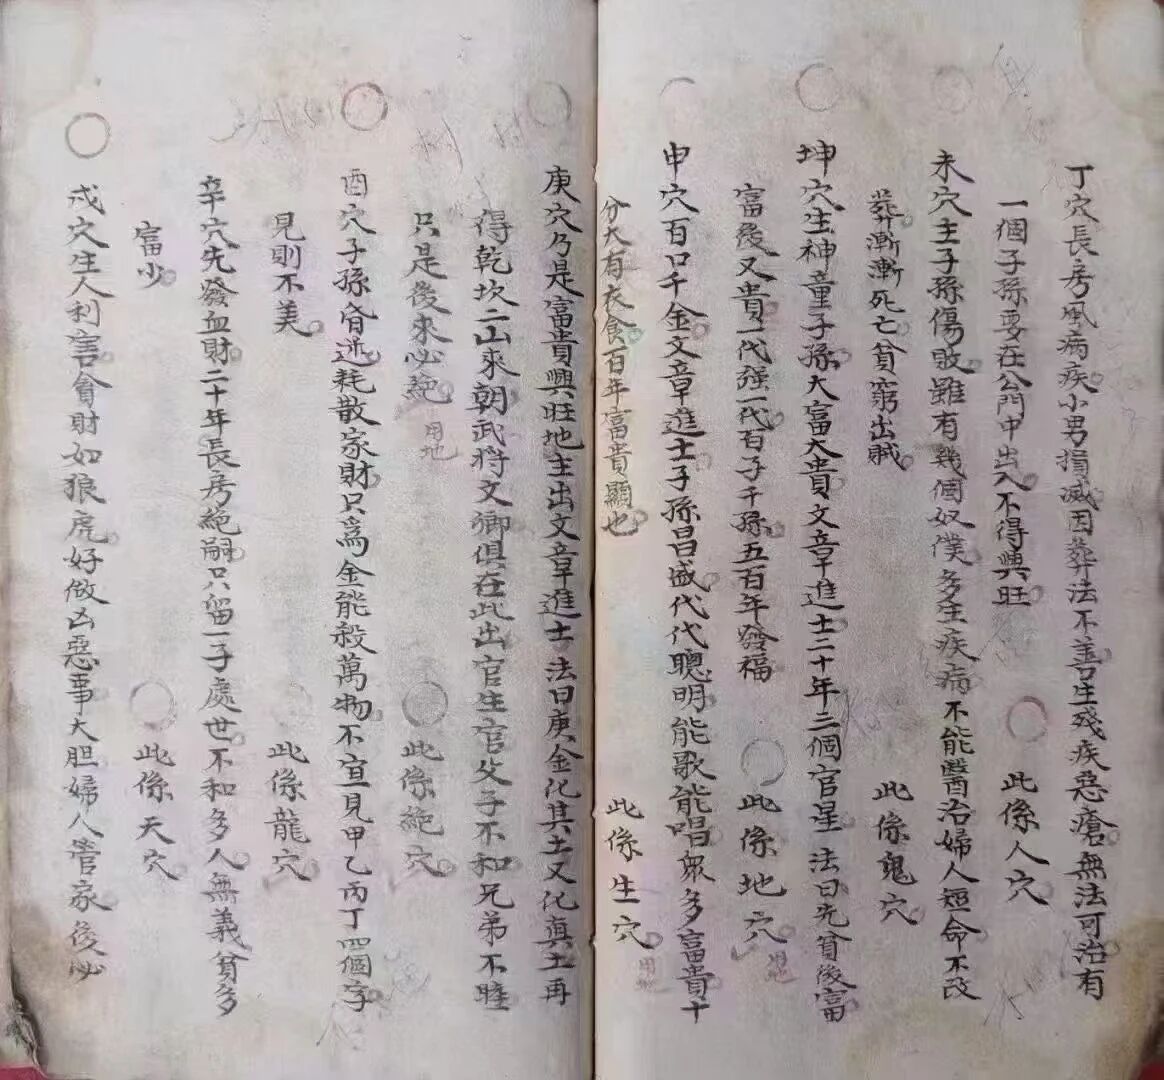 丁穴長房風病疾小男損滅因葬法不善生殘疾惡瘡無法可治有
一個子孫要在公門中出入不得興旺
此係人穴
未穴主子孫傷敗雖有幾個奴僕多生疾病不能醫治婦人短命不改
葬漸漸死亡貧窮出賊
此係鬼穴
坤穴生神童子孫大富大貴文章進士三十年三個官星法曰先貧後富
富後又貴一代强一代百子千孫五百年發福
此係地穴
用地
申穴百口千金文章進士子孫昌盛代代聰明能歌能唱衆多富貴十
分大有衣食百年富貴顯也
此係生穴
用地
庚穴乃是富貴興旺地主出文章進士法曰庚金化其土又化真土再
得乾坎二山來朝武將文卿俱在此出官生官父子不和兄弟不睦
只是後來必絕
用地
此係絕穴
酉穴子孫昏迷耗散家財只爲金能殺萬物不宜見甲乙丙丁四個字
見則不美
此係龍穴
辛穴先發血財二十年長房絕嗣只留一子處世不和多人無義貧多
富少
此係天穴
戍穴生人利害貪財如狼虎好做凶惡事大胆婦人管家後必